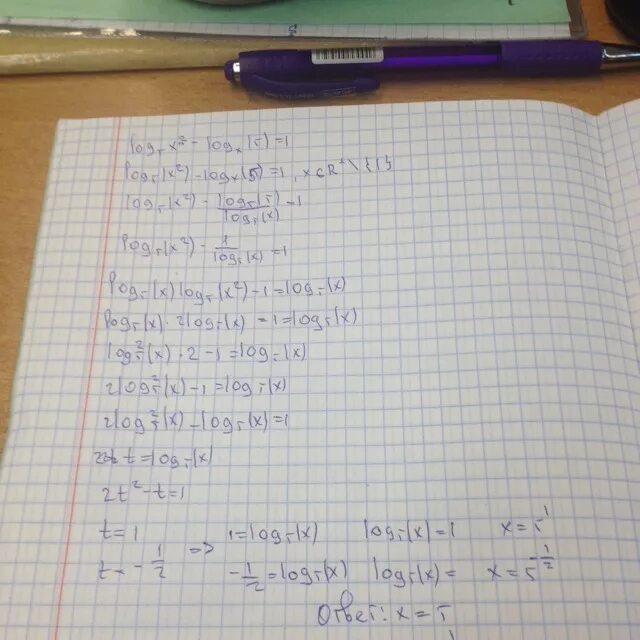 log₅ x² - logₓ(5) = 1
log₅(x²) - logₓ(5) = 1, x ∈ R⁺ \ {1}
log₅(x²) - log₅(5)/log₅(x) = 1
log₅(x²) - 1/log₅(x) = 1
log₅(x) log₅(x²) - 1 = log₅(x)
log₅(x) · 2log₅(x) - 1 = log₅(x)
log₅²(x) · 2 - 1 = log₅(x)
2log₅²(x) - 1 = log₅(x)
2log₅²(x) - log₅(x) = 1
t = log₅(x)
2t² - t = 1
t = 1 => 1 = log₅(x) log₅(x) = 1 x = 5¹
t = -1/2 -1/2 = log₅(x) log₅(x) = x = 5^(-1/2)
Ответ: x = 5